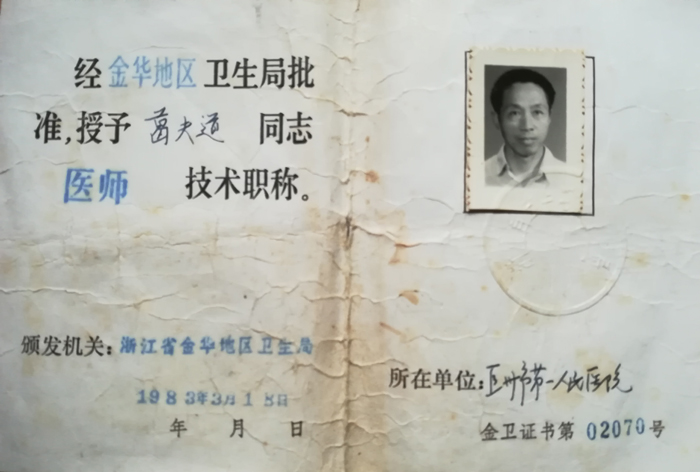 经金华地区卫生局批
准,授予 葛夫道 同志
医师 技术职称。
颁发机关:浙江省金华地区卫生局
1983年3月18日
年 月 日
所在单位:衢州市第一人民医院
金卫证书第 02070 号